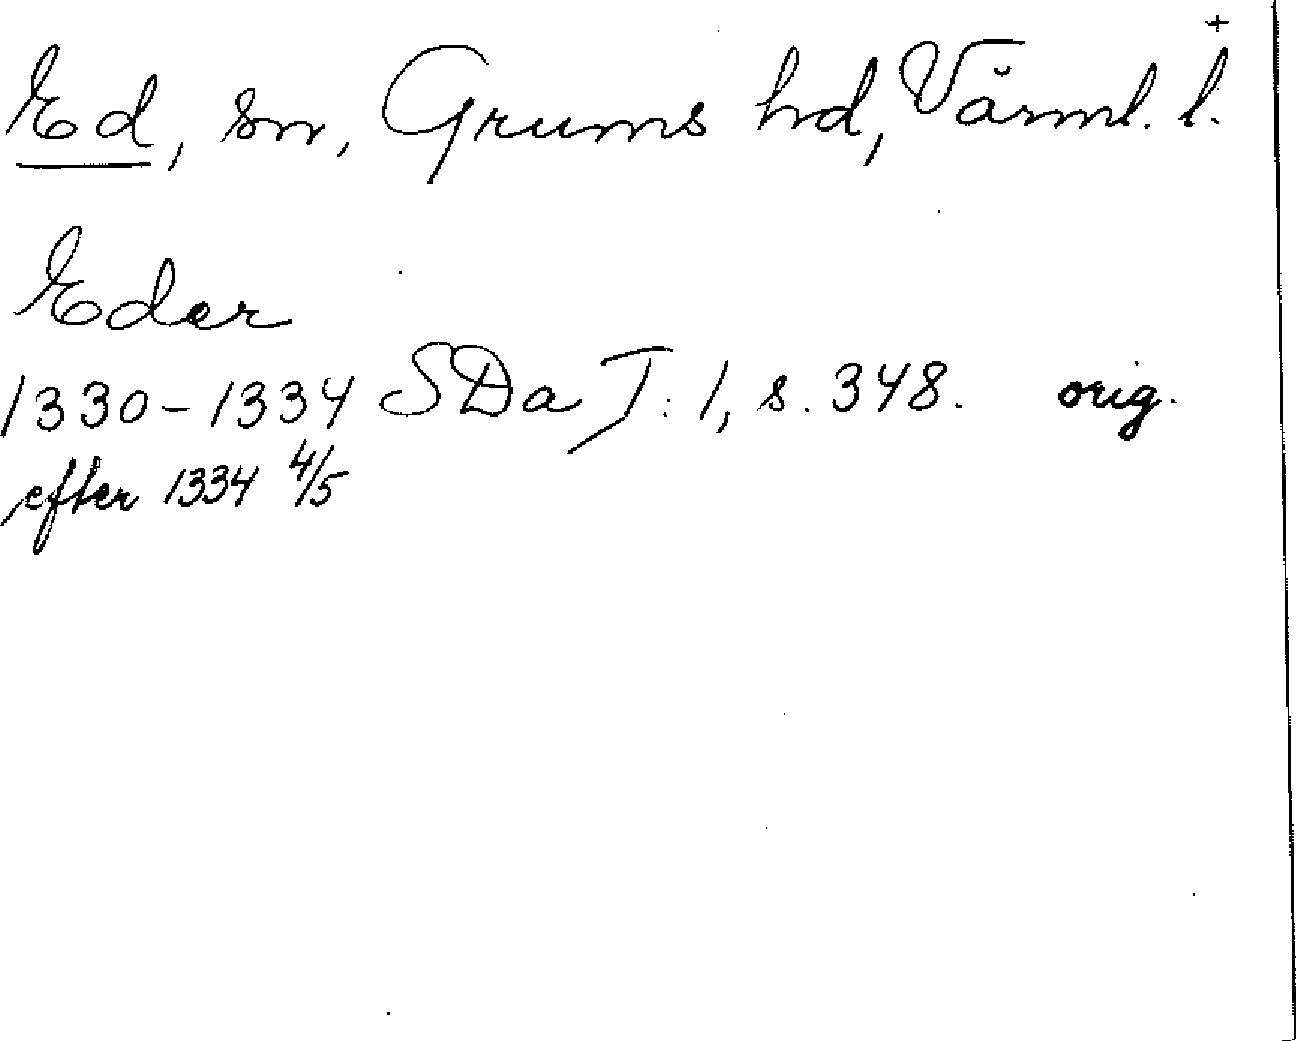 +
Ed, sn, Grums hd, Värml. l.
Eder
1330-1334 SDa I: 1, s. 348. orig.
efter 1334 4/5